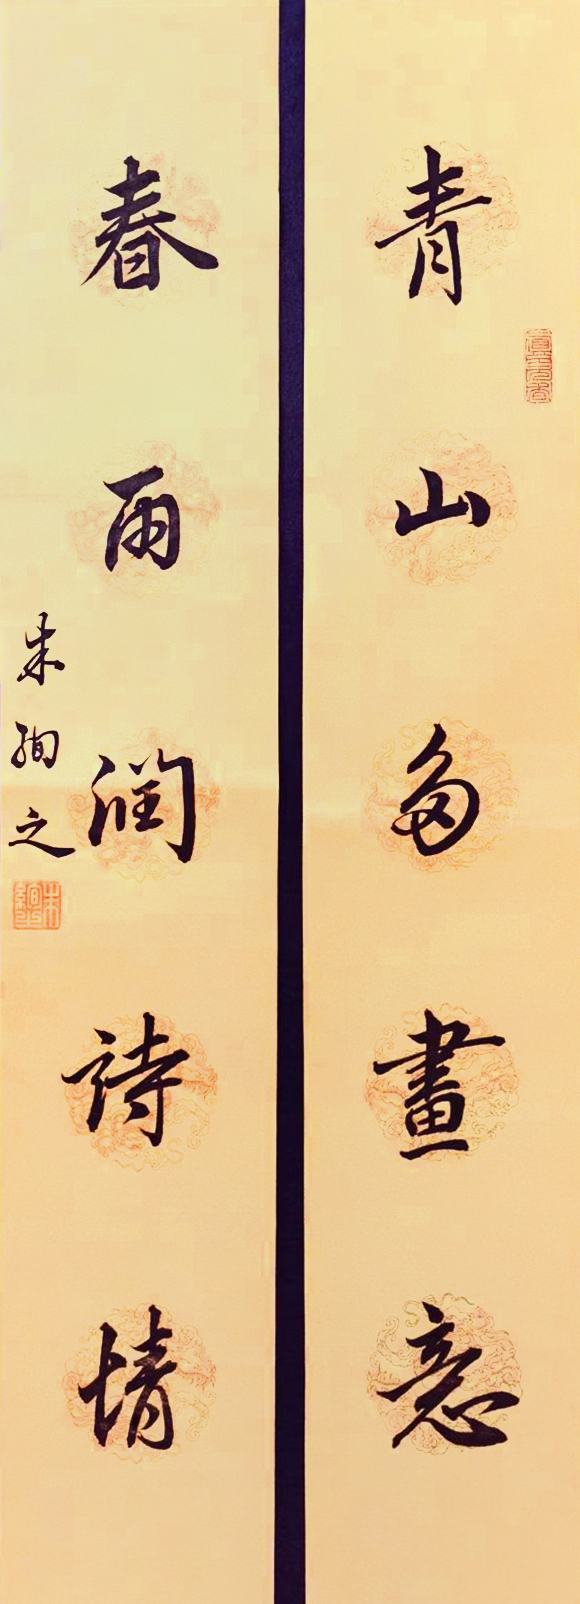 青山多畫意
春雨潤詩情
朱絢之